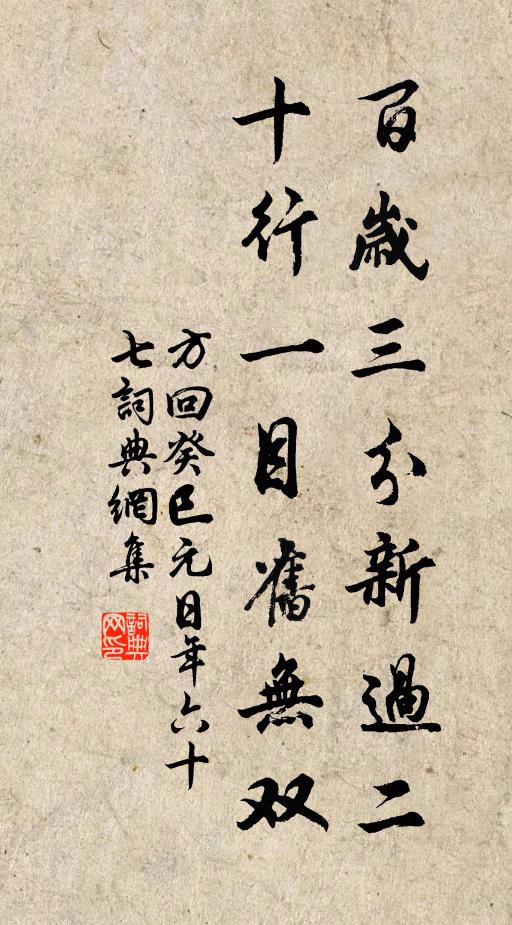 百歲三分新過二
十行一目舊無双
方回癸巳元日年六十
七詞典網集
詞典网印